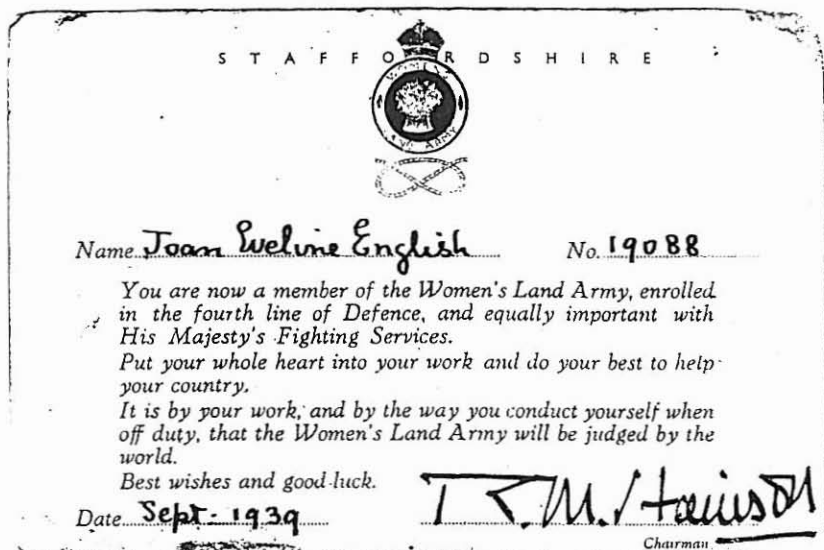 STAFFORDSHIRE
WOMEN'S
LAND ARMY
Name Joan Eveline English No. 19088
You are now a member of the Women's Land Army, enrolled
in the fourth line of Defence, and equally important with
His Majesty's Fighting Services.
Put your whole heart into your work and do your best to help
your country.
It is by your work, and by the way you conduct yourself when
off duty, that the Women's Land Army will be judged by the
world.
Best wishes and good luck.
Date Sept. 1939
Chairman